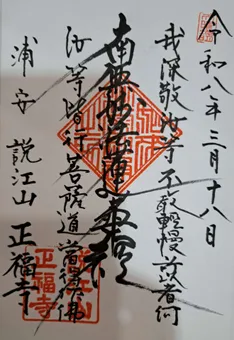 令和八年三月十八日
我深敬汝等 不敢輕慢 所以者何
南無妙法蓮華経
汝等皆行菩薩道 當得作佛
浦安 説江山 正福寺
正福寺